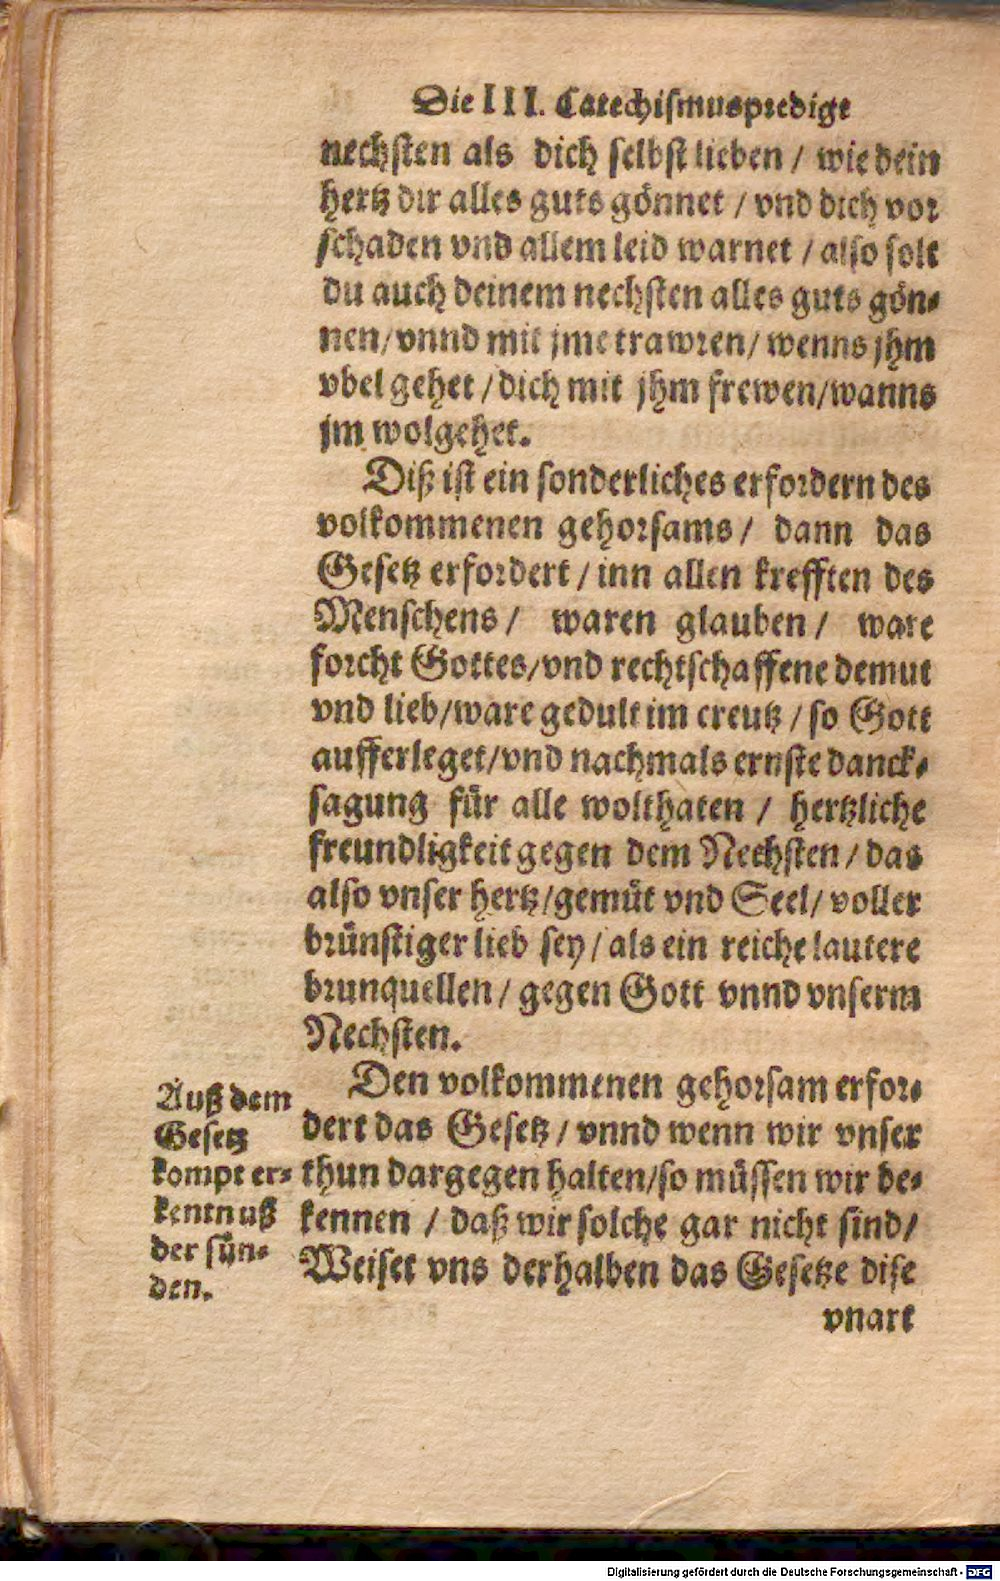 Die III. Catechismuspredigt
nechsten als dich selbst lieben / wie dein
hertz dir alles guts gönnet / vnd dich vor
schaden vnd allem leid warnet / also solt
du auch deinem nechsten alles guts gön-
nen/vnnd mit jme trawren/ wenns jhm
vbel gehet / dich mit jhm frewen/wanns
jm wolgehet.
Diß ist ein sonderliches erfordern des
volkommenen gehorsams / dann das
Gesetz erfordert / inn allen krefften des
Menschens / waren glauben / ware
forcht Gottes/vnd rechtschaffene demut
vnd lieb/ware gedult im creutz / so Gott
aufferleget/vnd nachmals ernste danck-
sagung für alle wolthaten / hertzliche
freundligkeit gegen dem Nechsten / das
also vnser hertz/gemüt vnd Seel/ voller
brünstiger lieb sey / als ein reiche lautere
brunquellen / gegen Gott vnnd vnserm
Nechsten.
Den volkommenen gehorsam erfor-
dert das Gesetz / vnnd wenn wir vnser
thun dargegen halten/so müssen wir be-
kennen / daß wir solche gar nicht sind/
Weiset vns derhalben das Gesetze dise
vnart
Auß dem
Gesetz
kompt er-
kentnuß
der sün-
den.
Digitalisierung gefördert durch die Deutsche Forschungsgemeinschaft - DFG